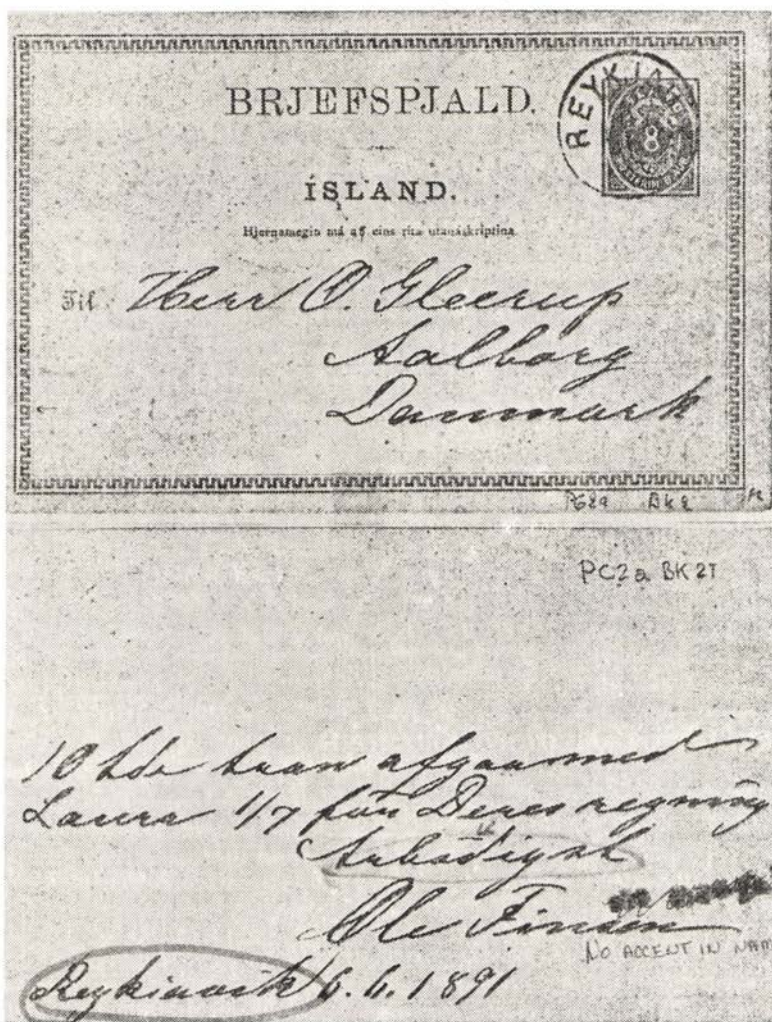 BRJEFSPJALD.
REYKJAV
8
ÍSLAND.
Hjernamegin má af eins rita utanáskriptina.
Til Herr O. Gleerup
Aalborg
Danmark
PC2a BK 2T
10 tdr tran afgaar med
Laura 1/7 for Deres regning
Ærbødigst
Ole Finsen
NO ACCENT IN NAM
Reykiavik 6. 6. 1891